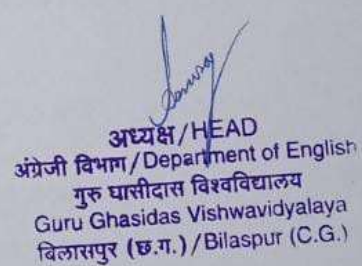 अध्यक्ष/HEAD
अंग्रेजी विभाग/Department of English
गुरु घासीदास विश्वविद्यालय
Guru Ghasidas Vishwavidyalaya
बिलासपुर (छ.ग.)/Bilaspur (C.G.)